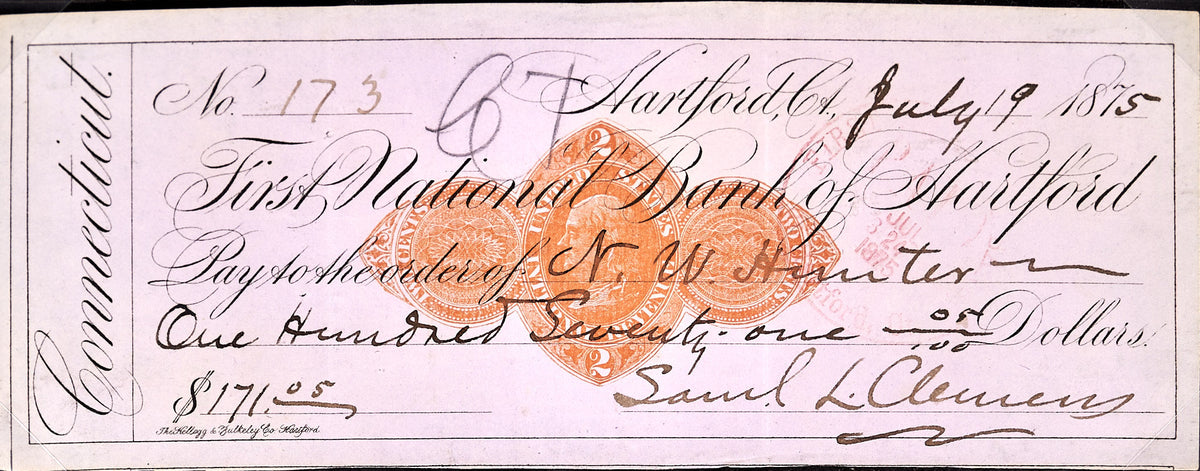 Connecticut.
No. 173 Hartford, Ct., July 19 1875
First National Bank of Hartford
Pay to the order of N. W. Hunter
One Hundred Seventy-one 05/100 Dollars.
$171.05
Saml. L. Clemens
The Kellogg & Bulkeley Co. Hartford.
2
UNITED STATES
CENTS
2
JUL
1875